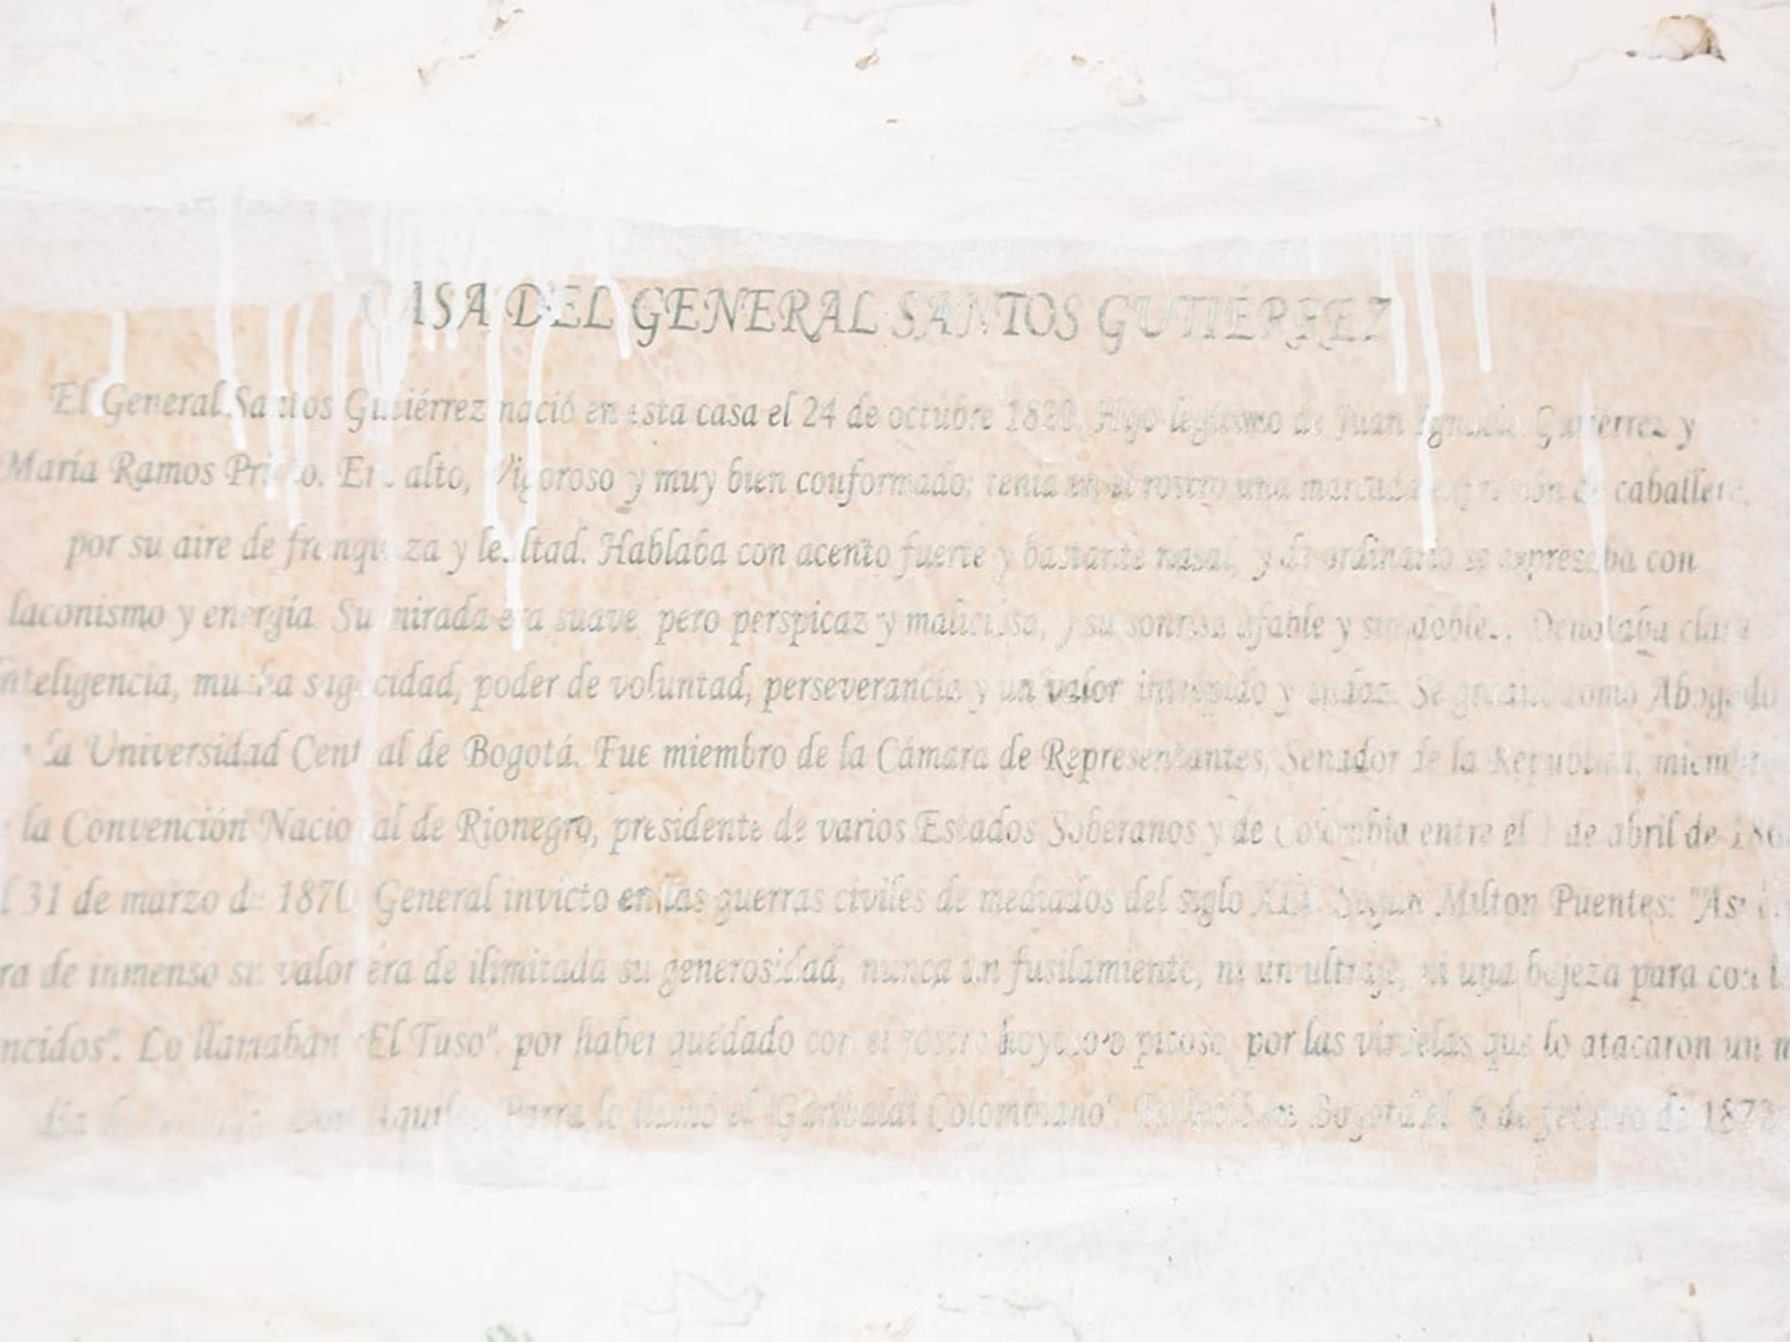 CASA DEL GENERAL SANTOS GUTIÉRREZ
El General Santos Gutiérrez nació en esta casa el 24 de octubre 1820. Hijo legítimo de Juan Ignacio Gutiérrez y
María Ramos Prieto. Era alto, Vigoroso y muy bien conformado; tenia en el rostro una marcada expresión de caballero,
por su aire de franqueza y lealtad. Hablaba con acento fuerte y bastante nasal, y de ordinario se expresaba con
laconismo y energía. Su mirada era suave, pero perspicaz y maliciosa, y su sonrisa afable y sin doblez. Denotaba clara
inteligencia, mucha sagacidad, poder de voluntad, perseverancia y un valor intrépido y audaz. Se graduó como Abogado
la Universidad Central de Bogotá. Fue miembro de la Cámara de Representantes, Senador de la República, miembro
la Convención Nacional de Rionegro, presidente de varios Estados Soberanos y de Colombia entre el 1 de abril de
31 de marzo de 1870. General invicto en las guerras civiles de mediados del siglo XIX. Según Milton Puentes: "Así
era de inmenso su valor era de ilimitada su generosidad, nunca un fusilamiento, ni un ultraje, ni una bajeza para con
vencidos". Lo llamaban "El Tuso", por haber quedado con el rostro hoyoso o picoso, por las viruelas que lo atacaron un
día de Aquileo Parra lo llamó el "Garibaldi Colombiano". Falleció en Bogotá el 6 de febrero de 1872